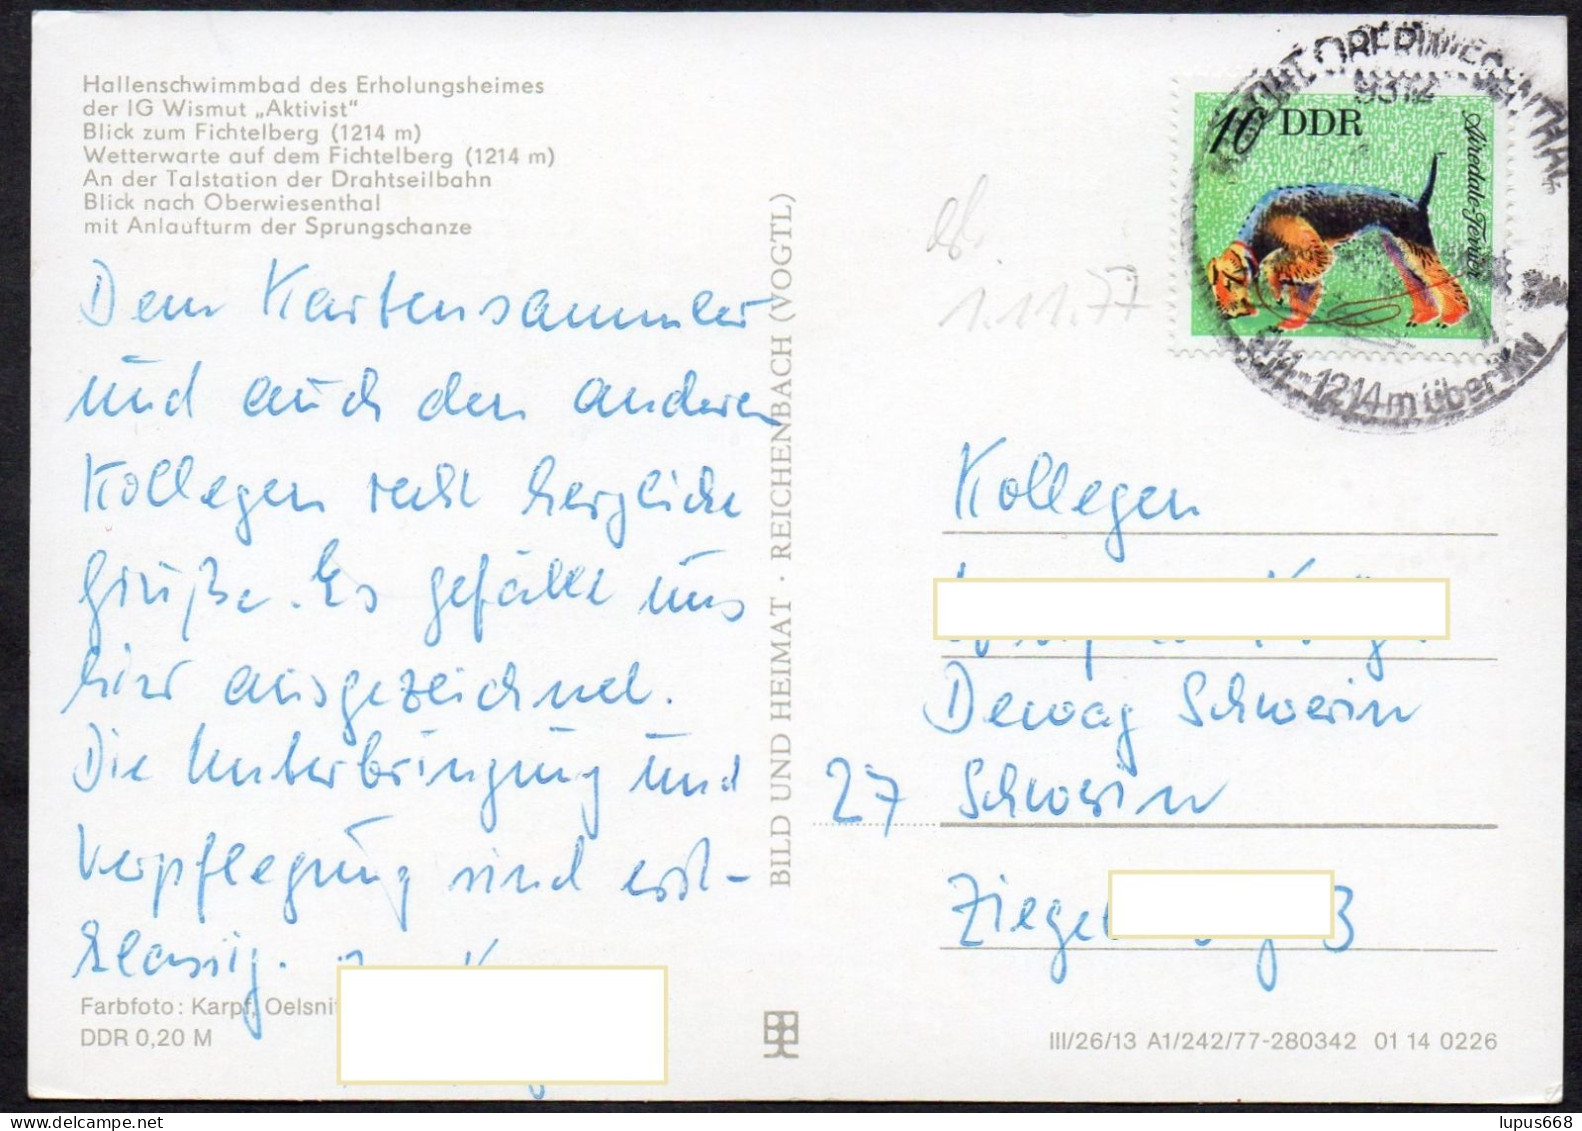 Hallenschwimmbad des Erholungsheimes
der IG Wismut „Aktivist“
Blick zum Fichtelberg (1214 m)
Wetterwarte auf dem Fichtelberg (1214 m)
An der Talstation der Drahtseilbahn
Blick nach Oberwiesenthal
mit Anlaufturm der Sprungschanze
Dem Kartensammler
und auch den anderen
Kollegen recht herzliche
Grüße. Es gefällt uns
hier ausgezeichnet.
Die Unterbringung und
Verpflegung sind erst-
klassig.
Farbfoto: Karpf, Oelsnit
DDR 0,20 M
BILD UND HEIMAT · REICHENBACH (VOGTL)
1.11.77
10 DDR
Airedale-Terrier
OBERWIESENTHAL
9312
914-1214m über NN
Kollegen
Dewag Schwerin
27 Schwerin
Ziegel 3
III/26/13 A1/242/77-280342 01 14 0226
lupus668